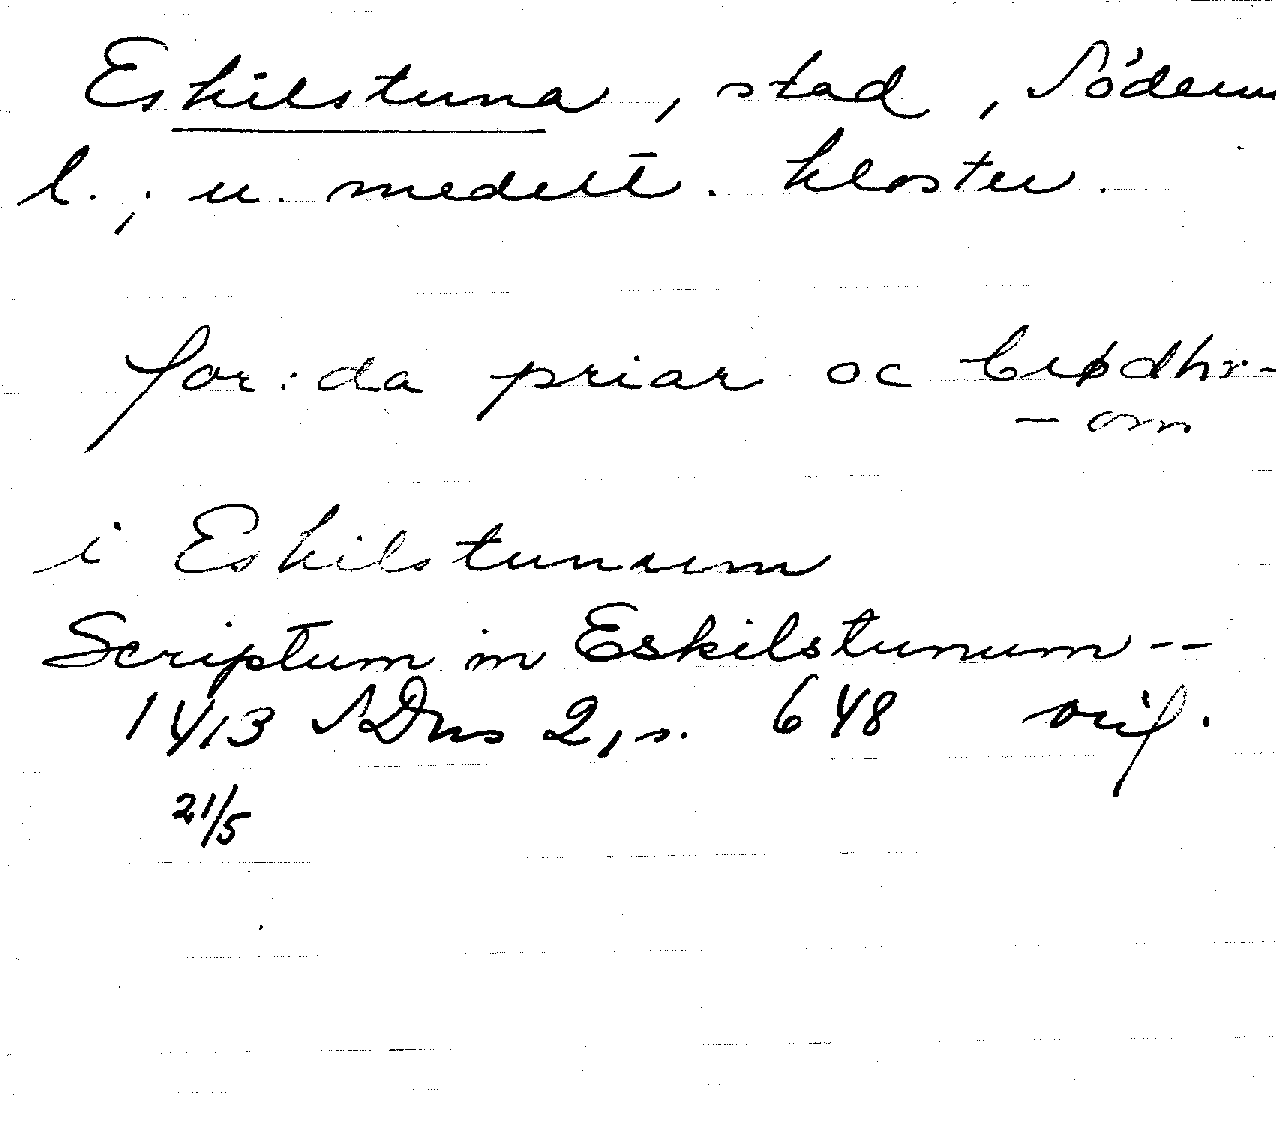 Eskilstuna, stad, Söderm
l.; u. medelt. kloster.
for:da priar oc brødhr-
- om
i Eskilstunum
Scriptum in Eskilstunum --
1413 SDns 2, s. 648 orig.
21/5